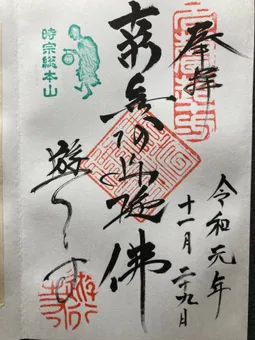 奉拝
令和元年
十一月二十九日
南無阿弥陀佛
時宗総本山
遊行寺